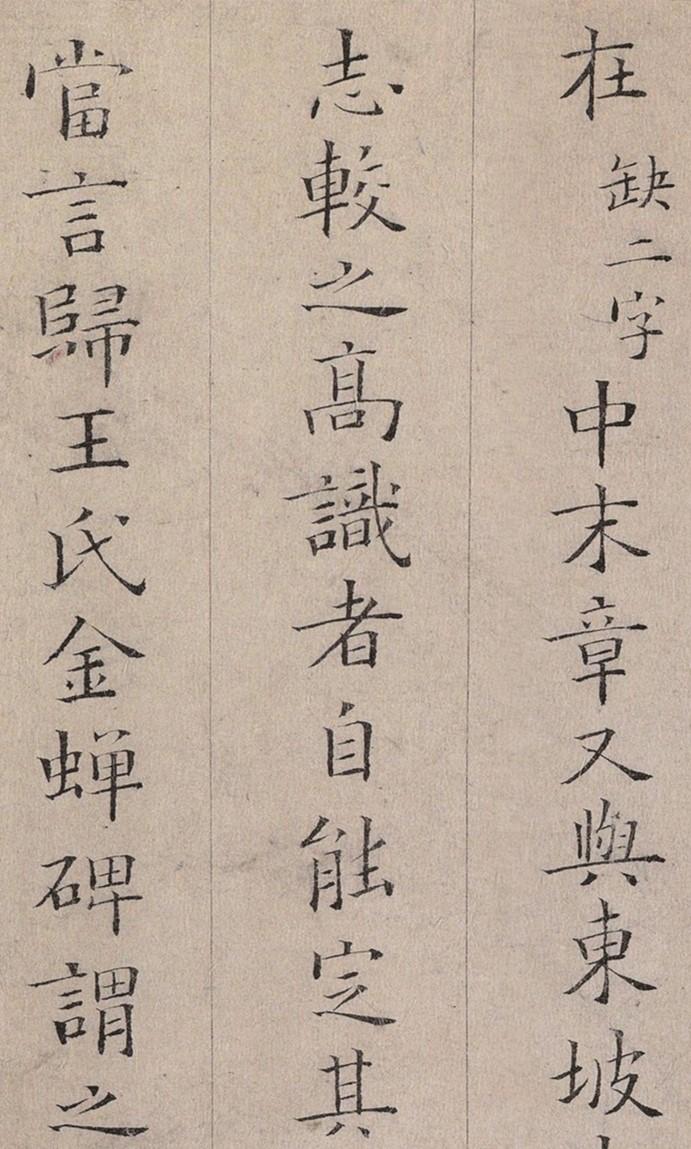 在缺二字中末章又與東坡
志較之高識者自能定其
當言歸王氏金蝉碑謂之